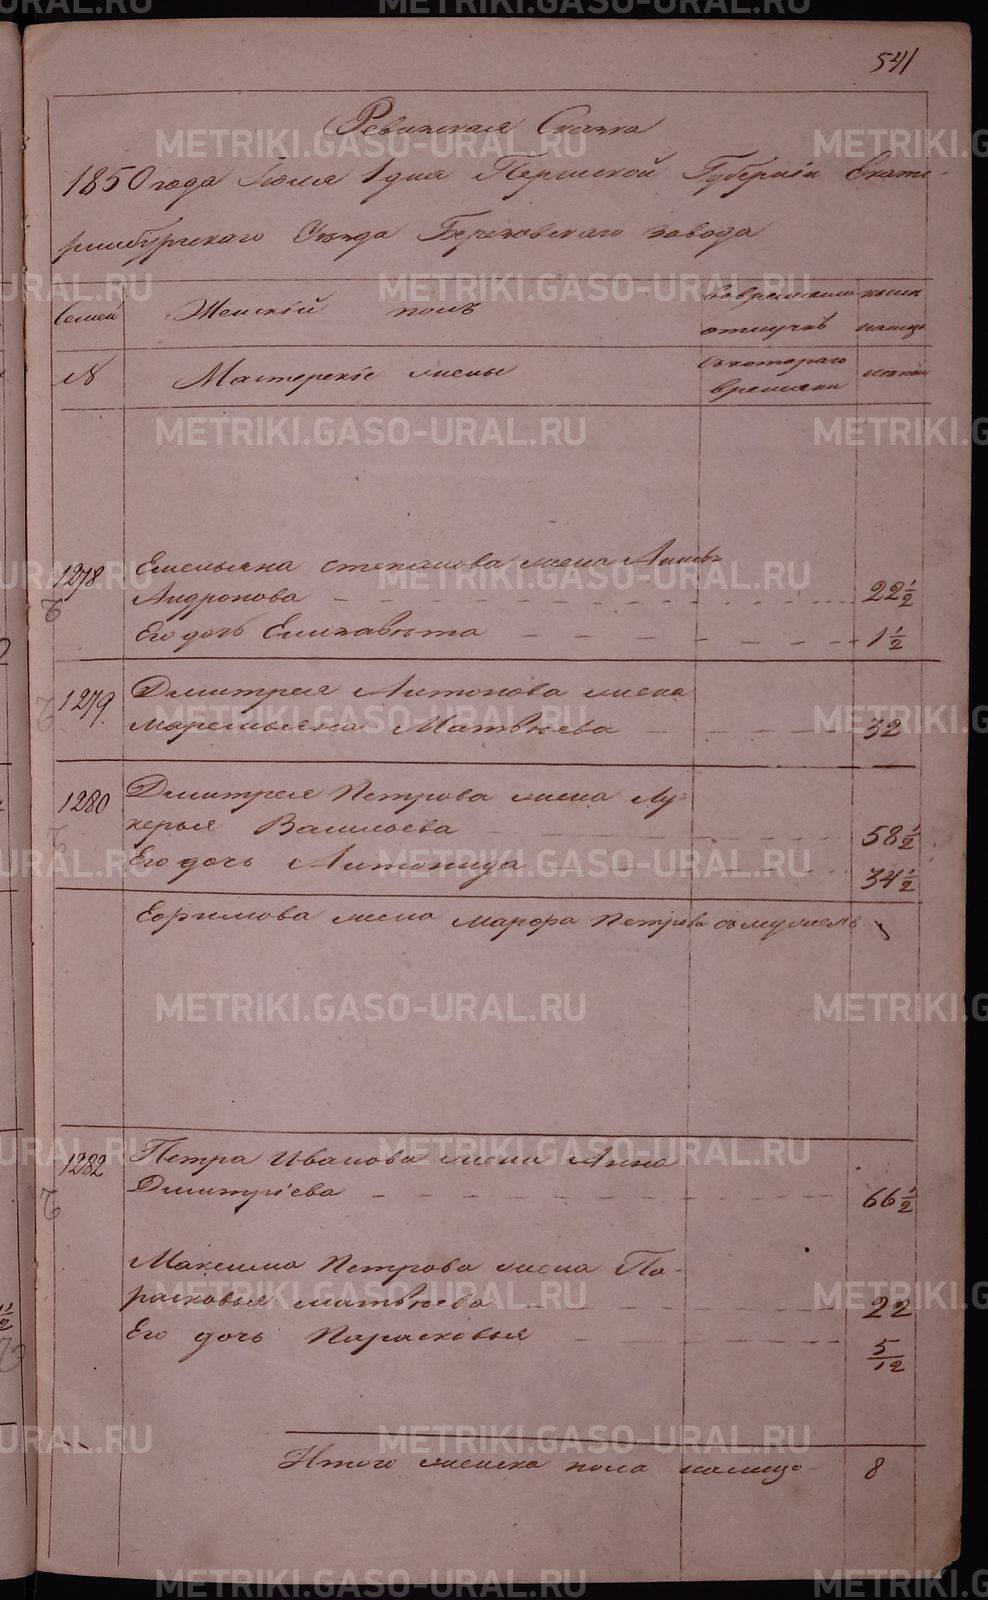 541
Ревизская Сказка
1850 года Июля 1 дня Пермской Губернии Екате-
ринбургскаго Округа Березовскаго завода
Семей Женскій полъ вовременной отлучкѣ ныне налицо
№ Мастерскіе жены съкотораго времяни
1278 Емельяна Степанова жена Анна
Андронова 22 1/2
Его дочь Елизавѣта 1 1/2
1279. Дмитрея Антонова жена
Маремьяна Матвѣева 32
1280 Дмитрея Петрова жена Лу-
керья Васильева 58 1/2
Его дочь Антонида 34 1/2
Ефимова жена Марфа Петрова съ мужемъ
1282 Петра Иванова жена Анна
Дмитріева 66 1/2
Максима Петрова жена Па-
расковья Матвѣева 22
Его дочь Парасковья 5/12
Итого женска пола налицо 8
METRIKI.GASO-URAL.RU